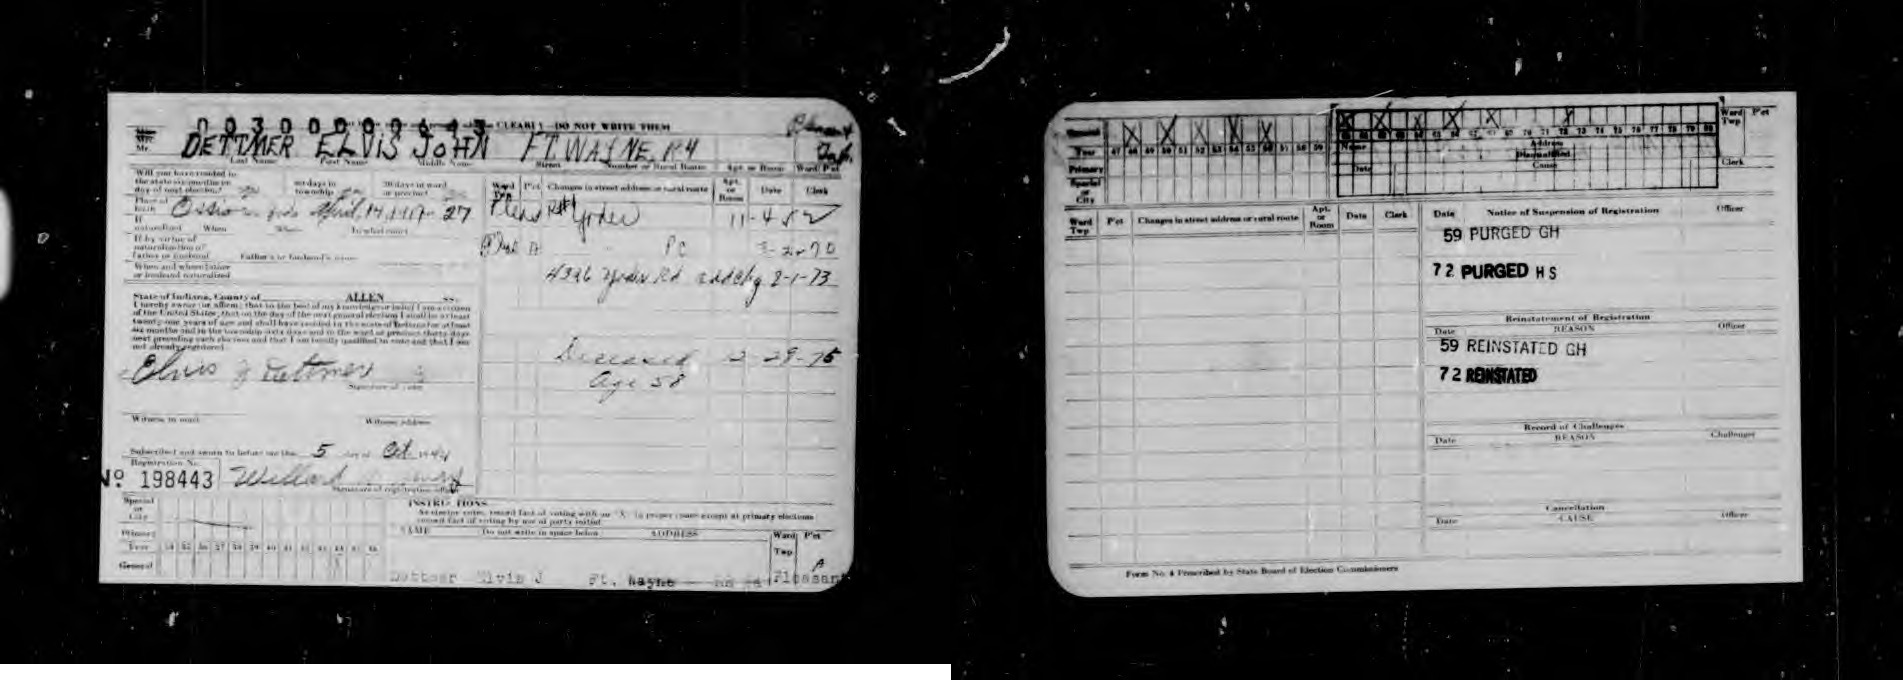 003000000643
CLEARLY DO NOT WRITE THEM
Mr. DETTMER ELVIS JOHN FT. WAYNE, R4
Last Name First Name Middle Name Street Number or Rural Route Apt. or Room Ward Pct
Will you have resided in
the state six months on
day of next election? 60 days in township 30 days in ward or precinct
Place of birth Ossian, Inda April, 14, 1917 27
If naturalized When Where In what court
If by virtue of
naturalization of
Father or husband Father's or husband's name
When and where father
or husband naturalized
Ward Twp Pct Changes in street address or rural route Apt. or Room Date Clerk
Pleas R#1 Yoder 11-4-52
A PC 2-70
4326 Yoder Rd addchg 2-1-73
Deceased 2-29-75
Age 58
State of Indiana, County of ALLEN ss.
I hereby swear (or affirm) that to the best of my knowledge or belief I am a citizen
of the United States; that on the day of the next general election I shall be at least
twenty-one years of age and shall have resided in the state of Indiana for at least
six months and in the township sixty days and in the ward or precinct thirty days
next preceding such election and that I am legally qualified to vote and that I am
not already registered.
Elvis J Dettmer
Signature of voter
Witness to mark Witness address
Subscribed and sworn to before me this 5 day of Oct. 1944
Registration No.
Nº 198443 Willard
Signature of registration officer
Special or City
Primary
Year 34 35 36 37 38 39 40 41 42 43 44 45 46
General
INSTRUCTIONS
As elector votes, record fact of voting with an "X" in proper space except at primary elections
record fact of voting by use of party initial
NAME Do not write in space below ADDRESS Ward Twp Pct
A
Dettmer Elvis J Ft. Wayne RR #4 Pleasant
General
Year 47 48 49 50 51 52 53 54 55 56 57 58 59
Primary
Special or City
Name Address
Disqualified
Date Cause
Ward Twp Pct
Clerk
Ward Twp Pct Changes in street address or rural route Apt. or Room Date Clerk
Date Notice of Suspension of Registration Officer
59 PURGED GH
72 PURGED HS
Reinstatement of Registration
Date REASON Officer
59 REINSTATED GH
72 REINSTATED
Record of Challenges
Date REASON Challenger
Cancellation
Date CAUSE Officer
Form No. 4 Prescribed by State Board of Election Commissioners